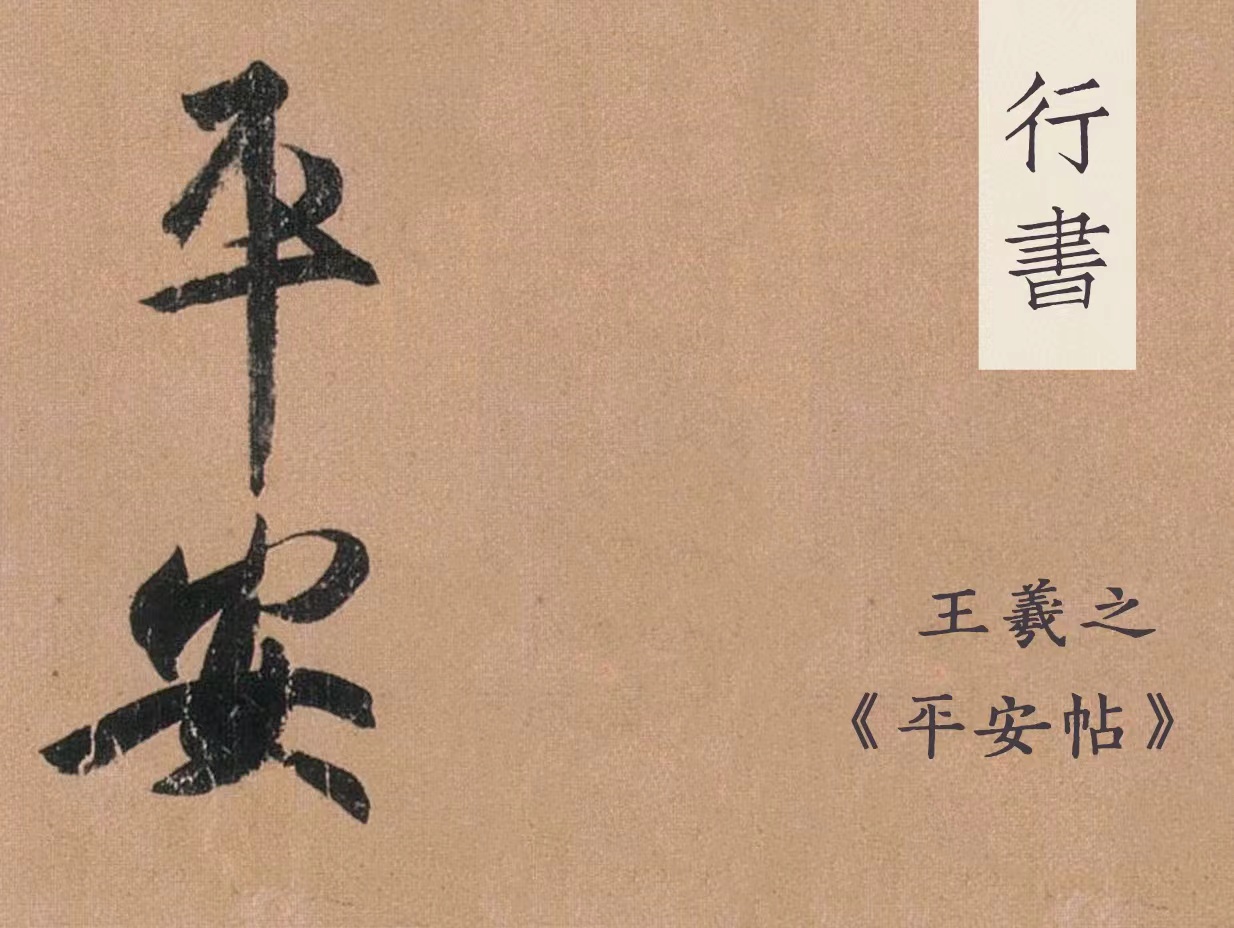 行書
王羲之
《平安帖》
平安